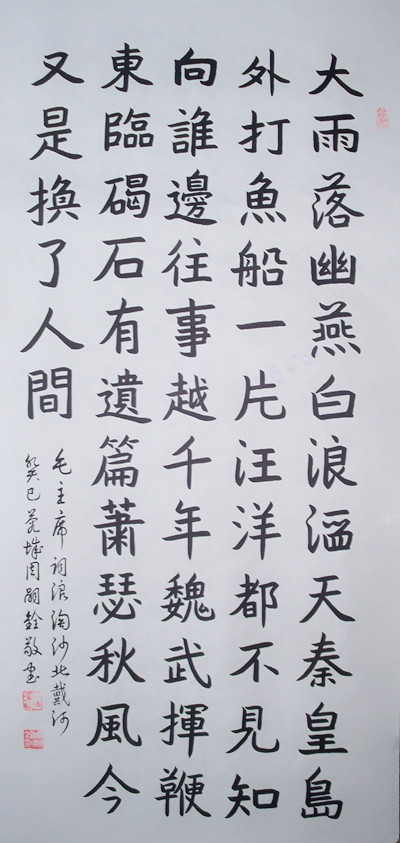 大雨落幽燕白浪滔天秦皇島
外打魚船一片汪洋都不見知
向誰邊往事越千年魏武揮鞭
東臨碣石有遺篇蕭瑟秋風今
又是換了人間
毛主席词浪淘沙北戴河
癸巳城周嗣銓敬書